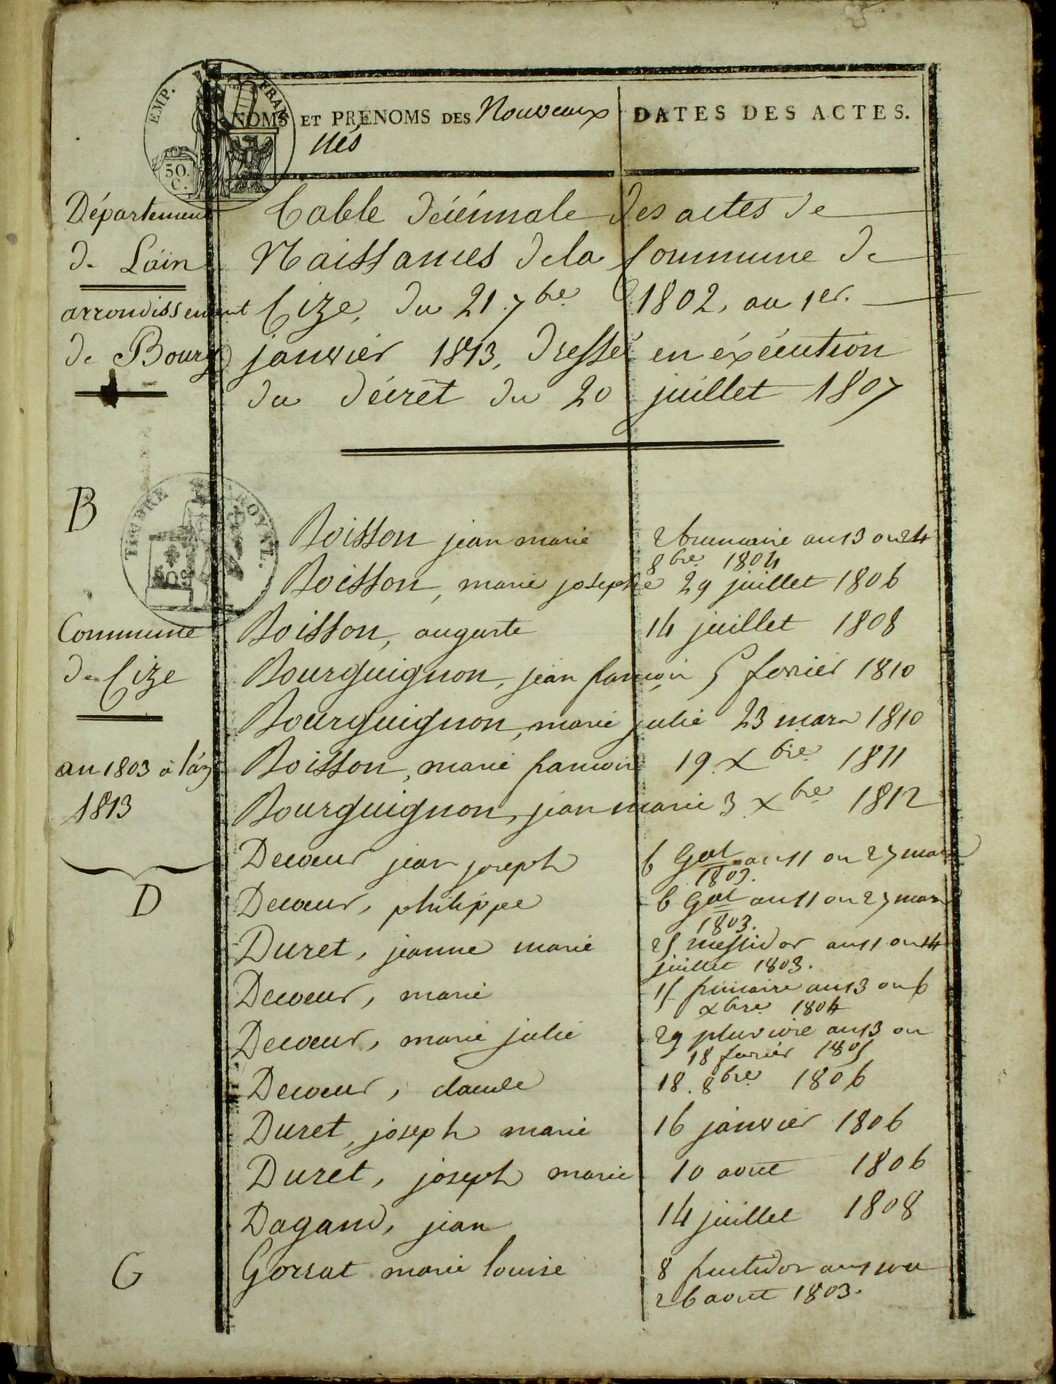 EMP. FRAN
50.
C.
NOMS ET PRÉNOMS DES Nouveaux
Nés
DATES DES ACTES.
Département
de Lain
arrondissement
de Bourg
Table décénnale des actes de
Naissances de la Commune de
Cize, du 21 7bre 1802, au 1er.
janvier 1813, dressé en éxécution
du décret du 20 juillet 1807
B
TIMBRE ROYAL.
Commune
de Cize
an 1803 à l'an
1813
Boisson jean marie 2 brumaire an 13 ou 24
8bre 1804
Boisson, marie josephe 29 juillet 1806
Boisson, auguste 14 juillet 1808
Bourguignon, jean françois 5 fevrier 1810
Bourguignon, marie julie 23 mars 1810
Boisson, marie françoise 19 Xbre 1811
Bourguignon, jean marie 3 Xbre 1812
D
Decœur jean joseph 6 Gal an 11 ou 27 mars
1803.
Decœur, philippe 6 Gal an 11 ou 27 mars
1803.
Duret, jeanne marie 25 messidor an 11 ou 14
juillet 1803.
Decœur, marie 15 frimaire an 13 ou 6
xbre 1804
Decœur, marie julie 29 pluviose an 13 ou
18 fevrier 1805
Decœur, claude 18. 8bre 1806
Duret, joseph marie 16 janvier 1806
Duret, joseph marie 10 aout 1806
Dagand, jean 14 juillet 1808
G
Gorrat marie louise 8 fructidor an 11 ou
26 aout 1803.